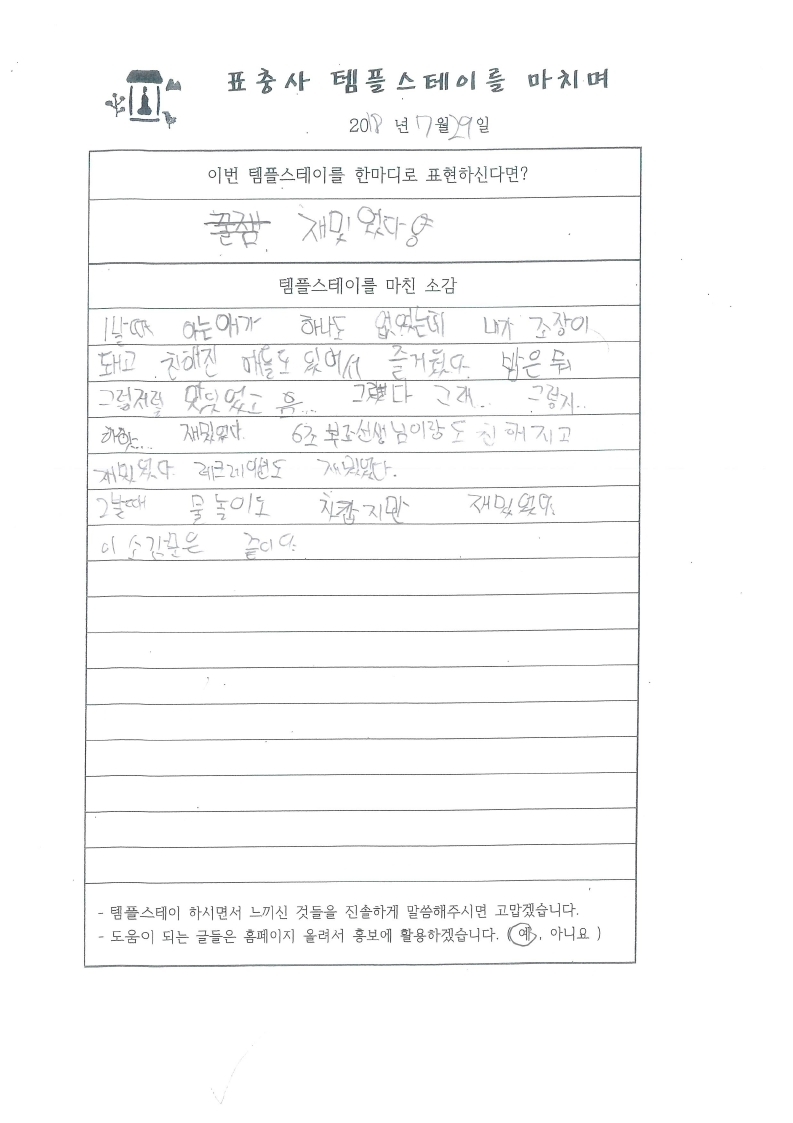 표충사 템플스테이를 마치며
2018 년 7월 29일
이번 템플스테이를 한마디로 표현하신다면?
꿀잼 재밌었다양
템플스테이를 마친 소감
1날때 아는애가 하나도 없었는데 내가 조장이
돼고 친해진 애들도 있어서 즐거웠다. 밥은 뭐
그럭저럭 맛있었고 흠... 그랬다 그래.. 그렇지..
하핫... 재밌었다. 6조 부조선생님이랑도 친해지고
재밌었다. 레크레이션도 재밌었다.
2날때 물놀이도 차갑지만 재밌었다.
이 소감문은 끝이다.
- 템플스테이 하시면서 느끼신 것들을 진솔하게 말씀해주시면 고맙겠습니다.
- 도움이 되는 글들은 홈페이지 올려서 홍보에 활용하겠습니다. ( 예 , 아니요 )